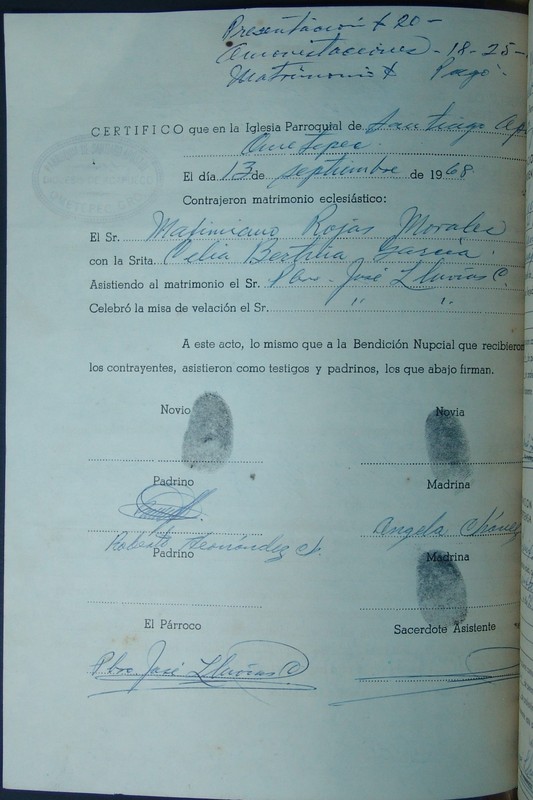 Presentación $ 20 -
Amonestaciones - 18 - 25 -
Matrimonio $ Pago
CERTIFICO que en la Iglesia Parroquial de Santiago Ap
Ometepec.
El día 13 de septiembre de 1968
Contrajeron matrimonio eclesiástico:
El Sr. Maximiano Rojas Morales
con la Srita. Celia Bertha García
Asistiendo al matrimonio el Sr. Pbro. José Lluvias C.
Celebró la misa de velación el Sr. " "
A este acto, lo mismo que a la Bendición Nupcial que recibieron
los contrayentes, asistieron como testigos y padrinos, los que abajo firman.
Novio Novia
Padrino Madrina
Roberto Hernández Ch. Angela Chávez
Padrino Madrina
El Párroco Sacerdote Asistente
Pbro. José Lluvias C